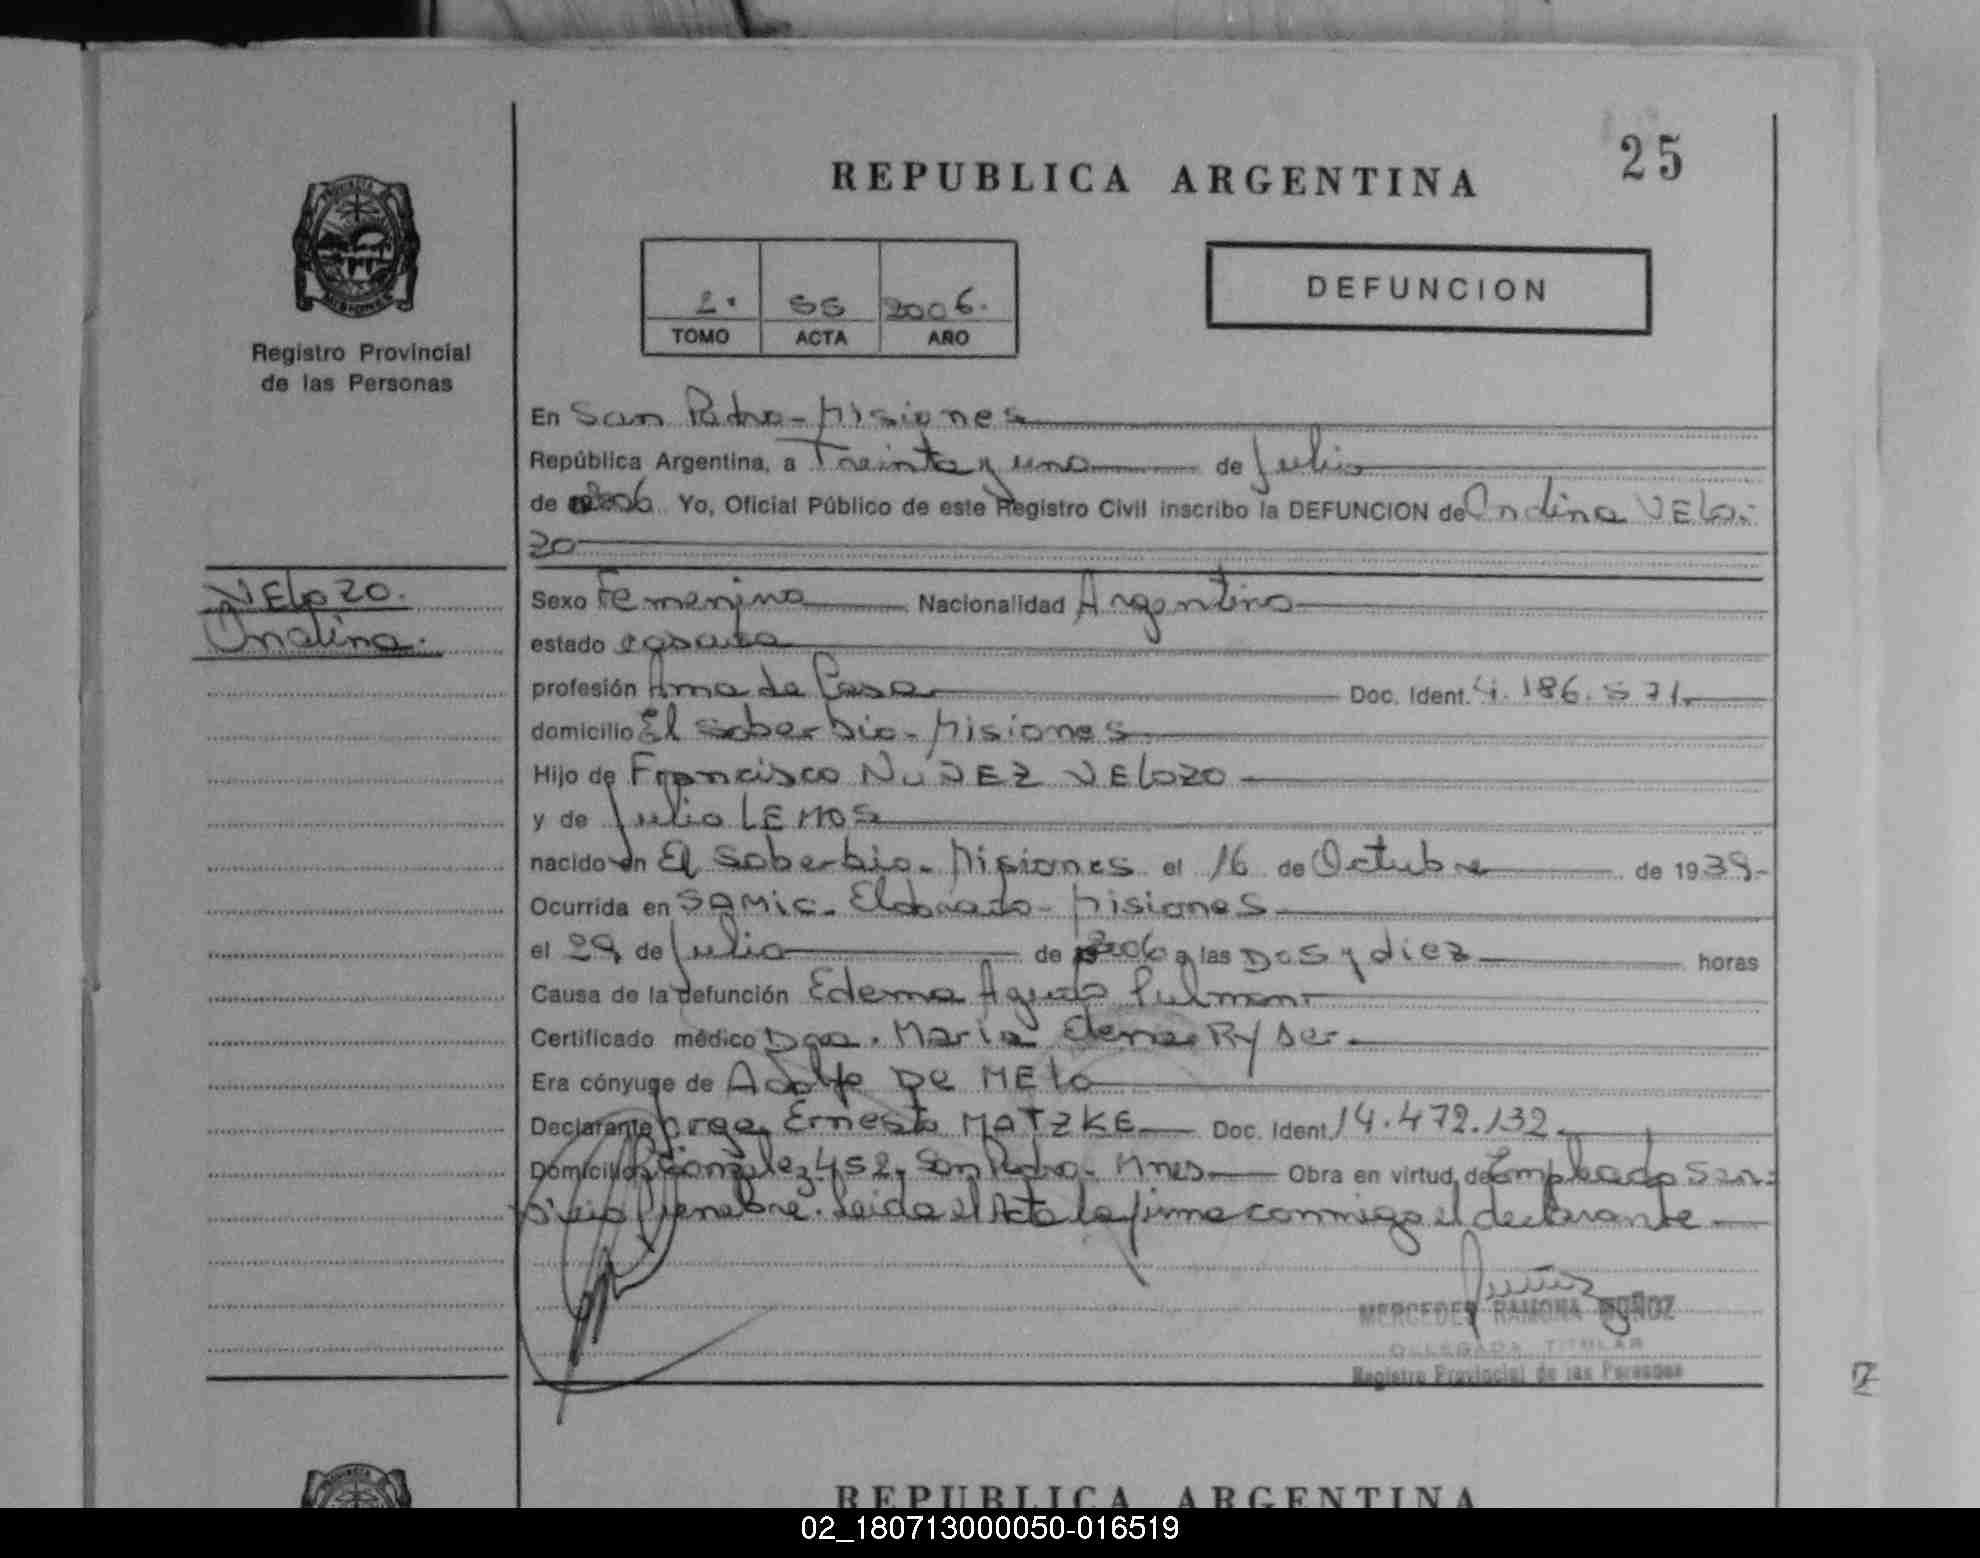 25
REPUBLICA ARGENTINA
DEFUNCION
2. 55 2006.
TOMO ACTA AÑO
Registro Provincial
de las Personas
En San Pedro - Misiones
República Argentina, a Treinta y uno de Julio
de 2006 Yo, Oficial Público de este Registro Civil inscribo la DEFUNCION de Ondina VELO-
ZO
VELOZO.
Ondina.
Sexo Femenino Nacionalidad Argentina
estado casada
profesión Ama de Casa Doc. Ident. 4.186.571.
domicilio El Soberbio - Misiones
Hijo de Francisco NUÑEZ VELOZO
y de Julia LEMOS
nacido en El Soberbio - Misiones el 16 de Octubre de 1939-
Ocurrida en SAMIC - Eldorado - Misiones
el 29 de Julio de 2006 a las Dos y diez horas
Causa de la defunción Edema Agudo Pulmon
Certificado médico Dra. Maria Elena Ryser
Era cónyuge de Adolfo DE MELO
Declarante Jorge Ernesto MATZKE Doc. Ident. 14.472.132.
Domicilio Gonzalez 452, San Pedro - Mnes Obra en virtud de Empleado Ser-
vicio Funebre. Leida el Acta la firma conmigo el declarante
MERCEDES RAMONA MUÑOZ
DELEGADA TITULAR
Registro Provincial de las Personas
REPUBLICA ARGENTINA
02_180713000050-016519